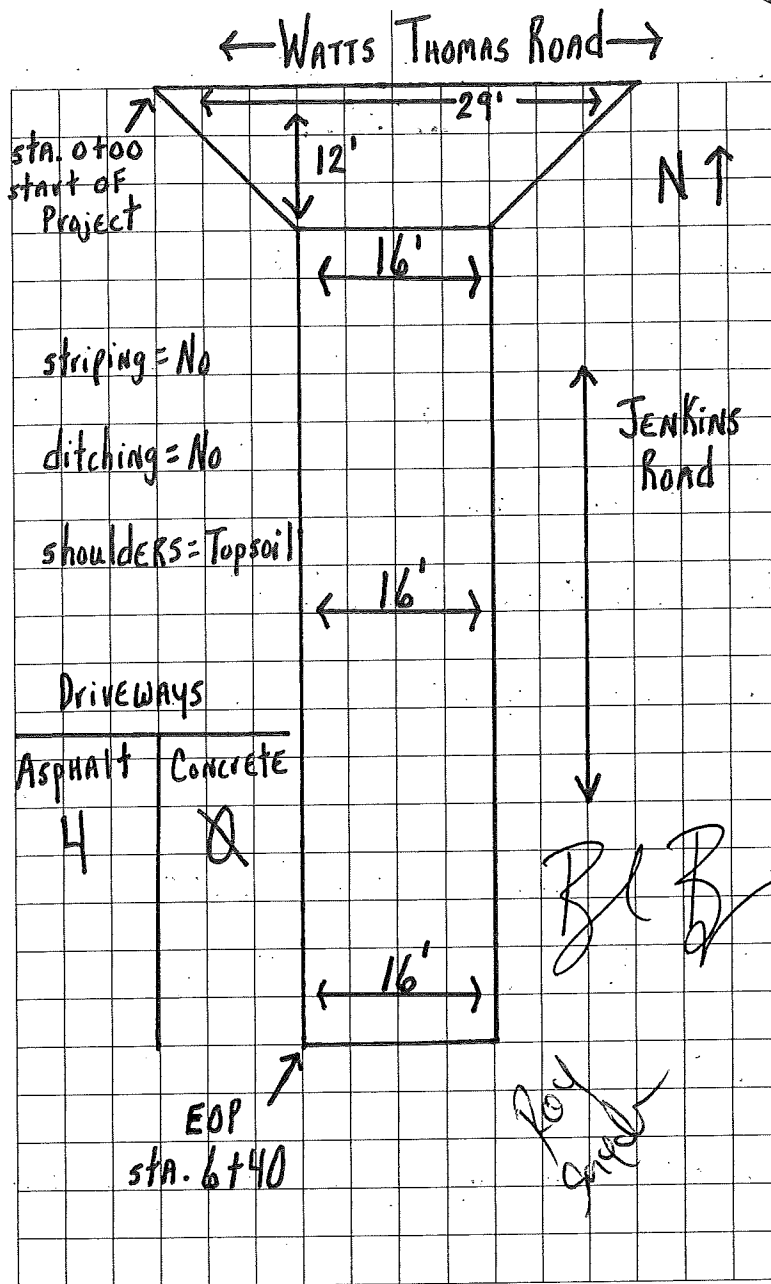 ← WATTS THOMAS ROAD →
29'
12'
StA. 0+00
start OF
Project
N ↑
16'
striping = No
ditching = No
shouldERS = Topsoil
JENKINS
Road
16'
DrivEWAYS
AspHAlt CoNcrEtE
4 0
16'
EOP
stA. 6+40
Roy
Snyder